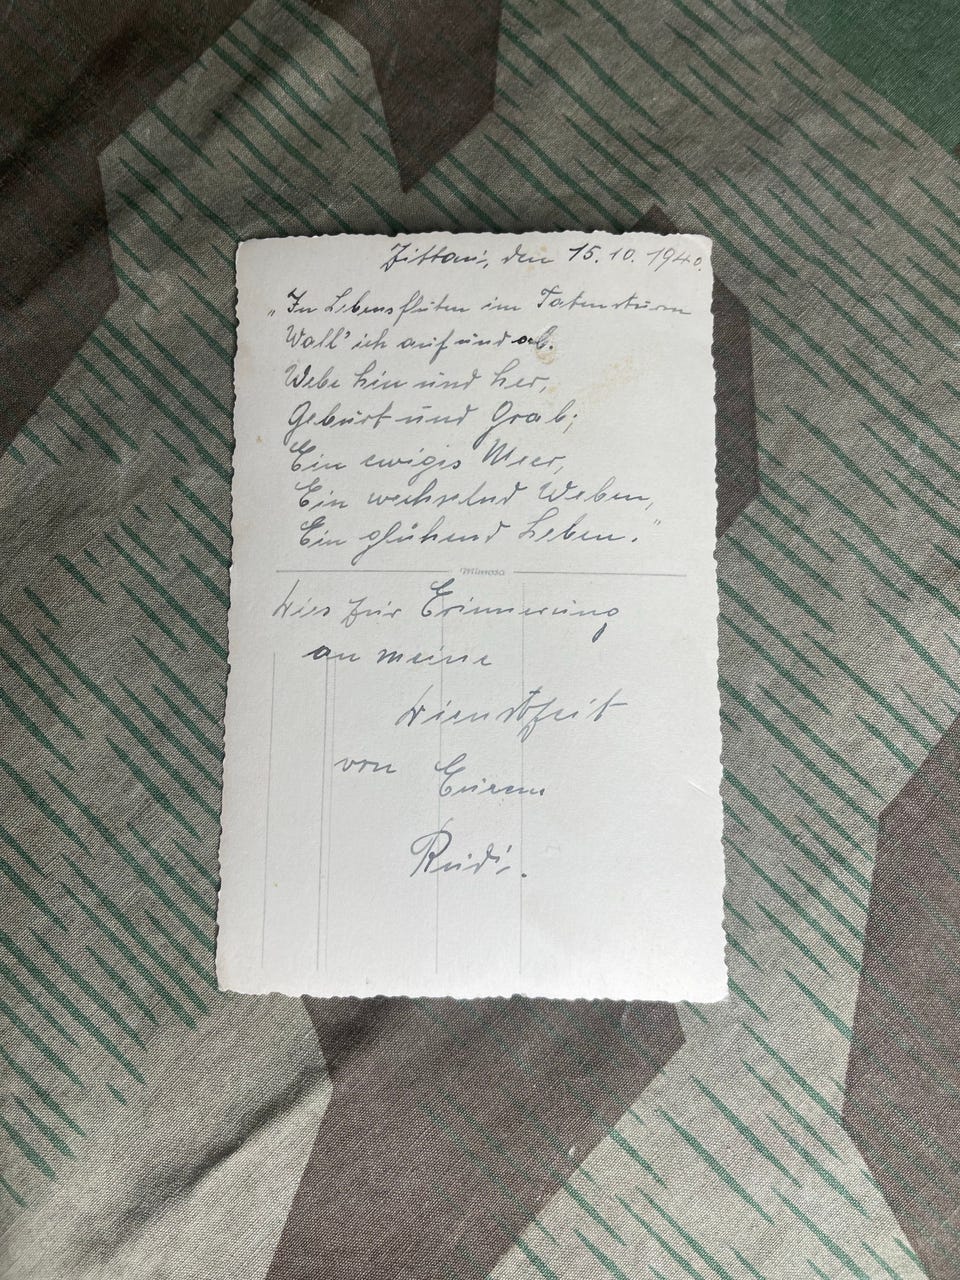 Zittau, den 15. 10. 1940.
„In Lebensfluten im Tatensturm
Wall' ich auf und ab.
Webe hin und her,
Geburt und Grab;
Ein ewiges Meer,
Ein wechselnd Weben,
Ein glühend Leben."
Mimosa
Dies zur Erinnerung
an meine
Dienstzeit
von Eurem
Rudi.